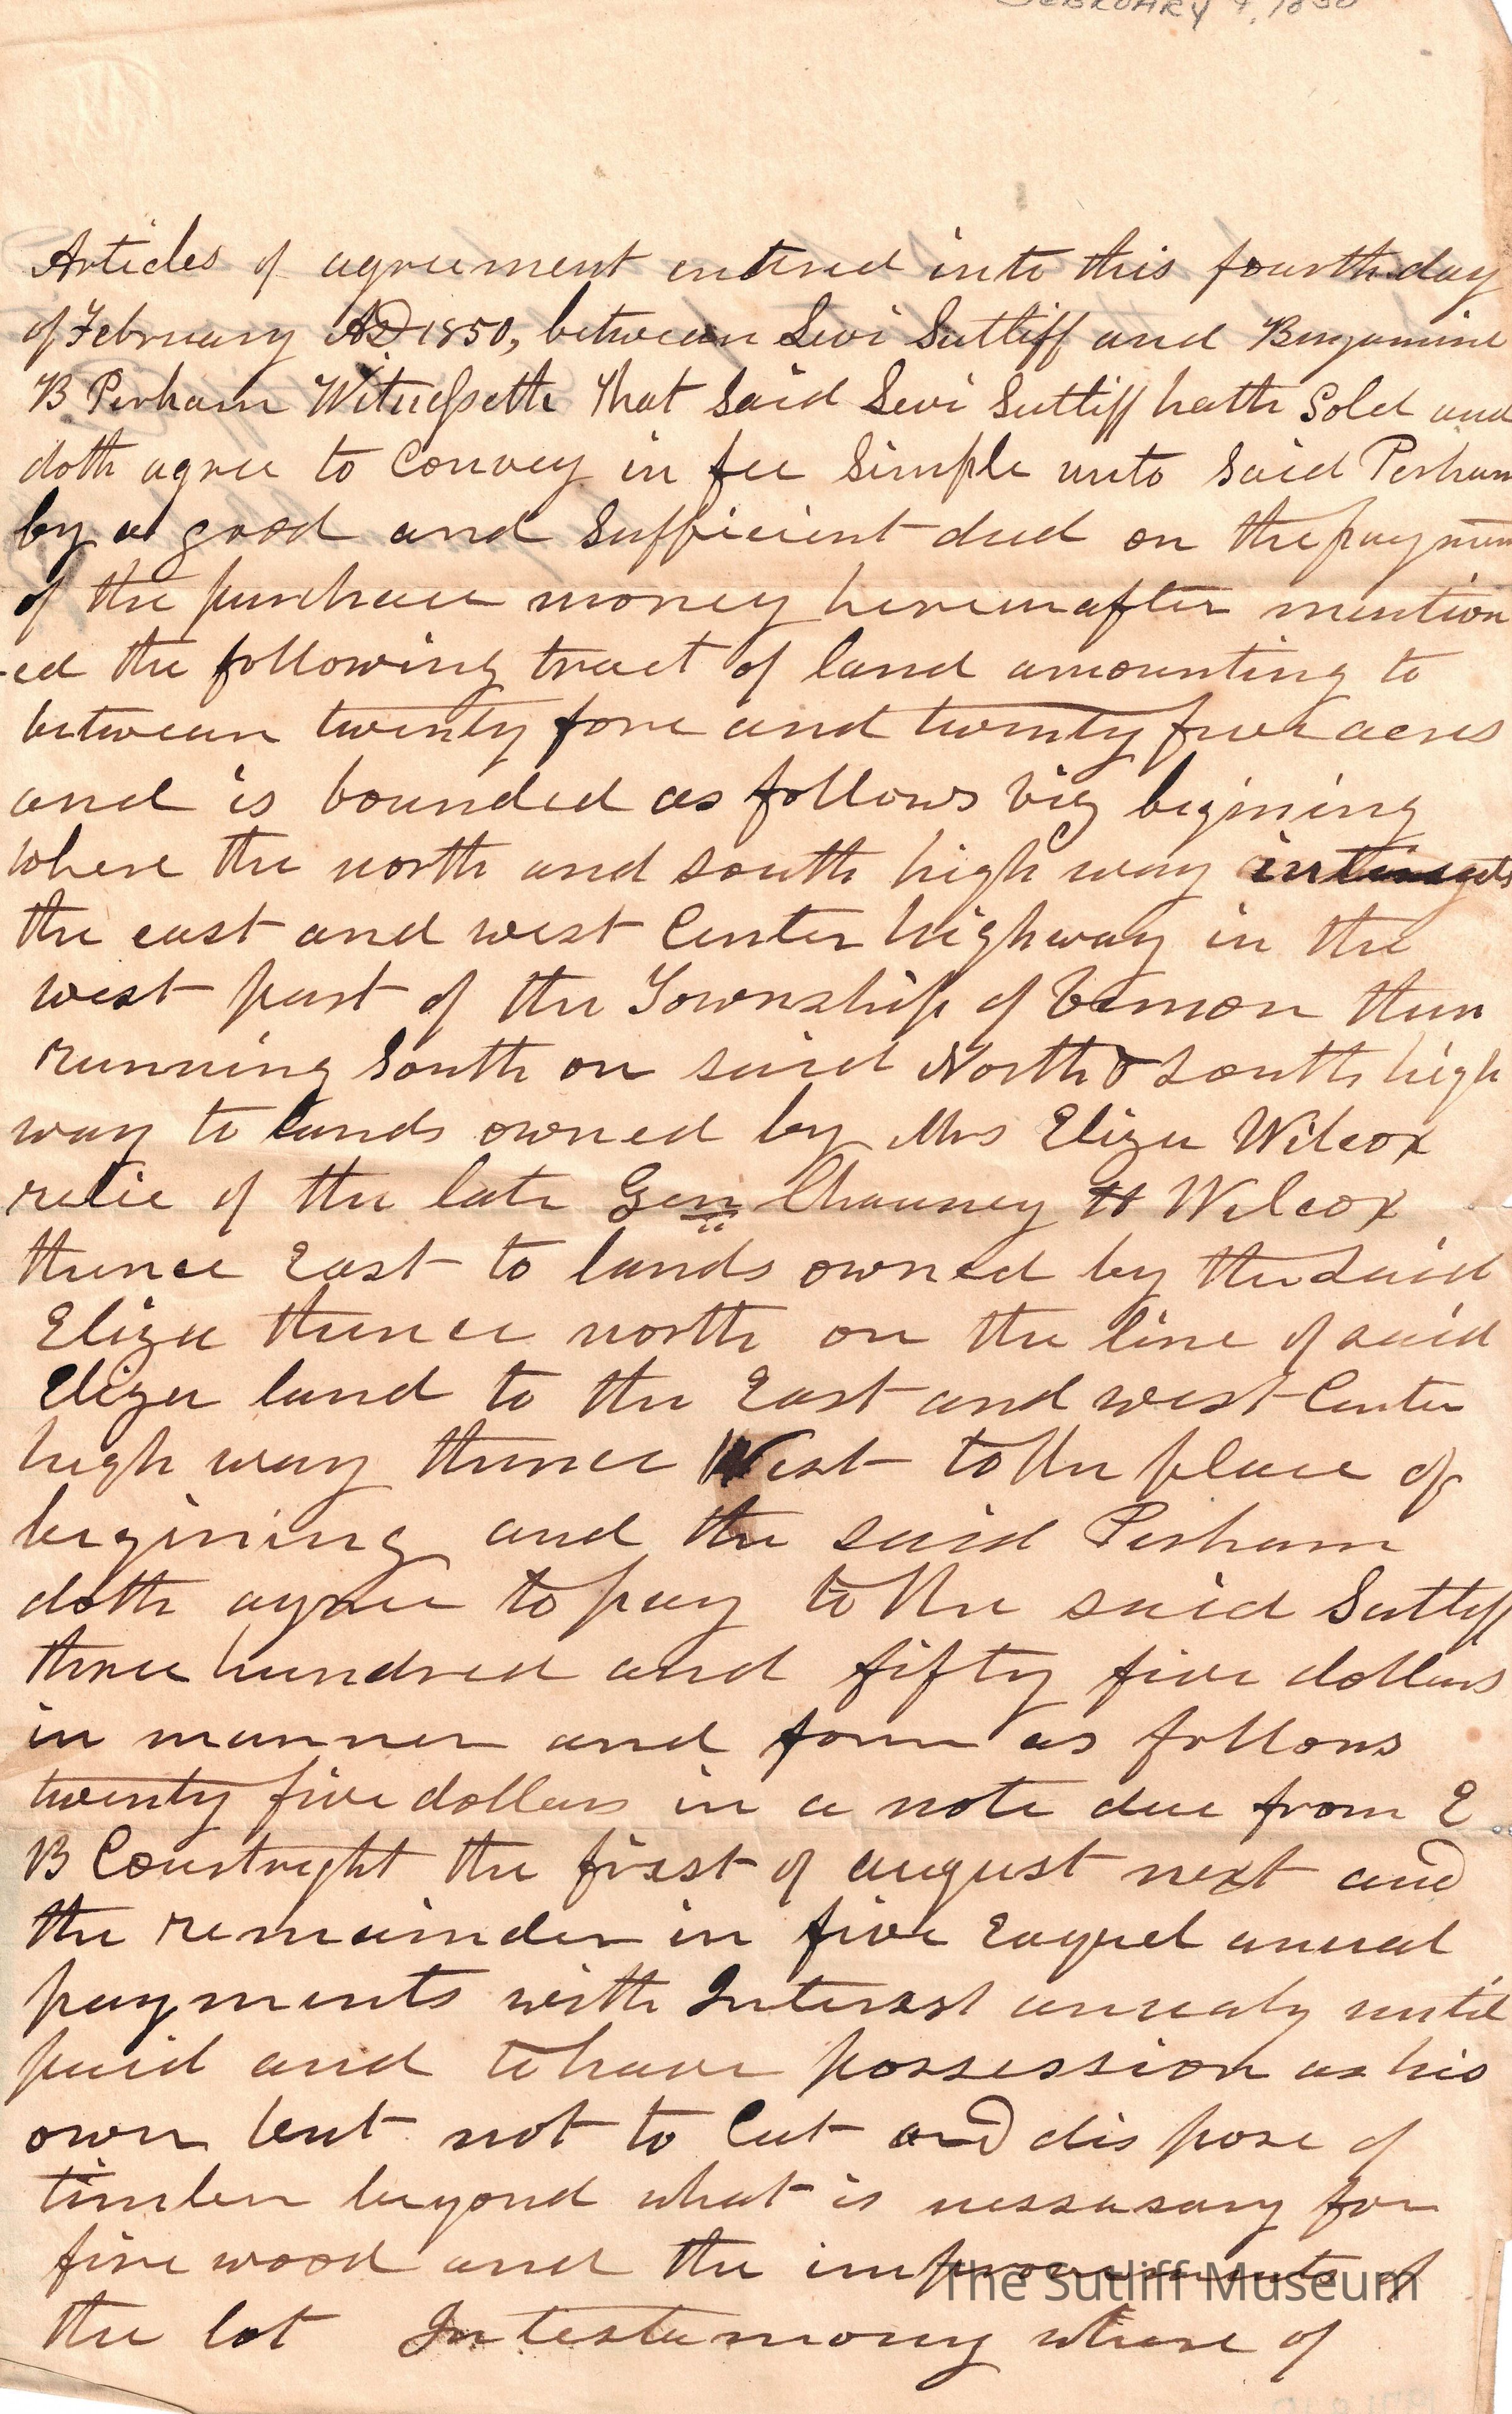 FEBRUARY 4, 1850
Articles of agreement entired into this fourth day
of February AD 1850, between Levi Sutliff and Benjamine
B Perham Witnesseth That Said Levi Sutliff hath Sold and
doth agree to Convey in fee Simple unto Said Perham
by a good and Sufficient deed on the paymen
of the purchase money hereinafter mention
-ed the following tract of land amounting to
between twenty fore and twenty five acres
and is bounded as follows viz begining
where the north and south high way
the east and west Center highway in the
west part of the Township of Vernon then
running South on said North & South high
way to lands owned by Mrs Eliza Wilcox
relic of the late Gen Chauncy H Wilcox
thence East to lands owned by the Said
Eliza thence north on the line of said
Eliza land to the East and west Center
high way thence West to the place of
begining and the said Perham
doth agree to pay to the said Sutliff
three hundred and fifty five dollars
in manner and form as follows
twenty five dollars in a note due from E
B Courtright the first of august next and
the remainder in five Eaquel anual
payments with Interest anualy until
paid and to have possession as his
own but not to Cut and dis pose of
timber beyond what is nessasary for
fire wood and the improvements of
the lot In testamony where of
The Sutliff Museum